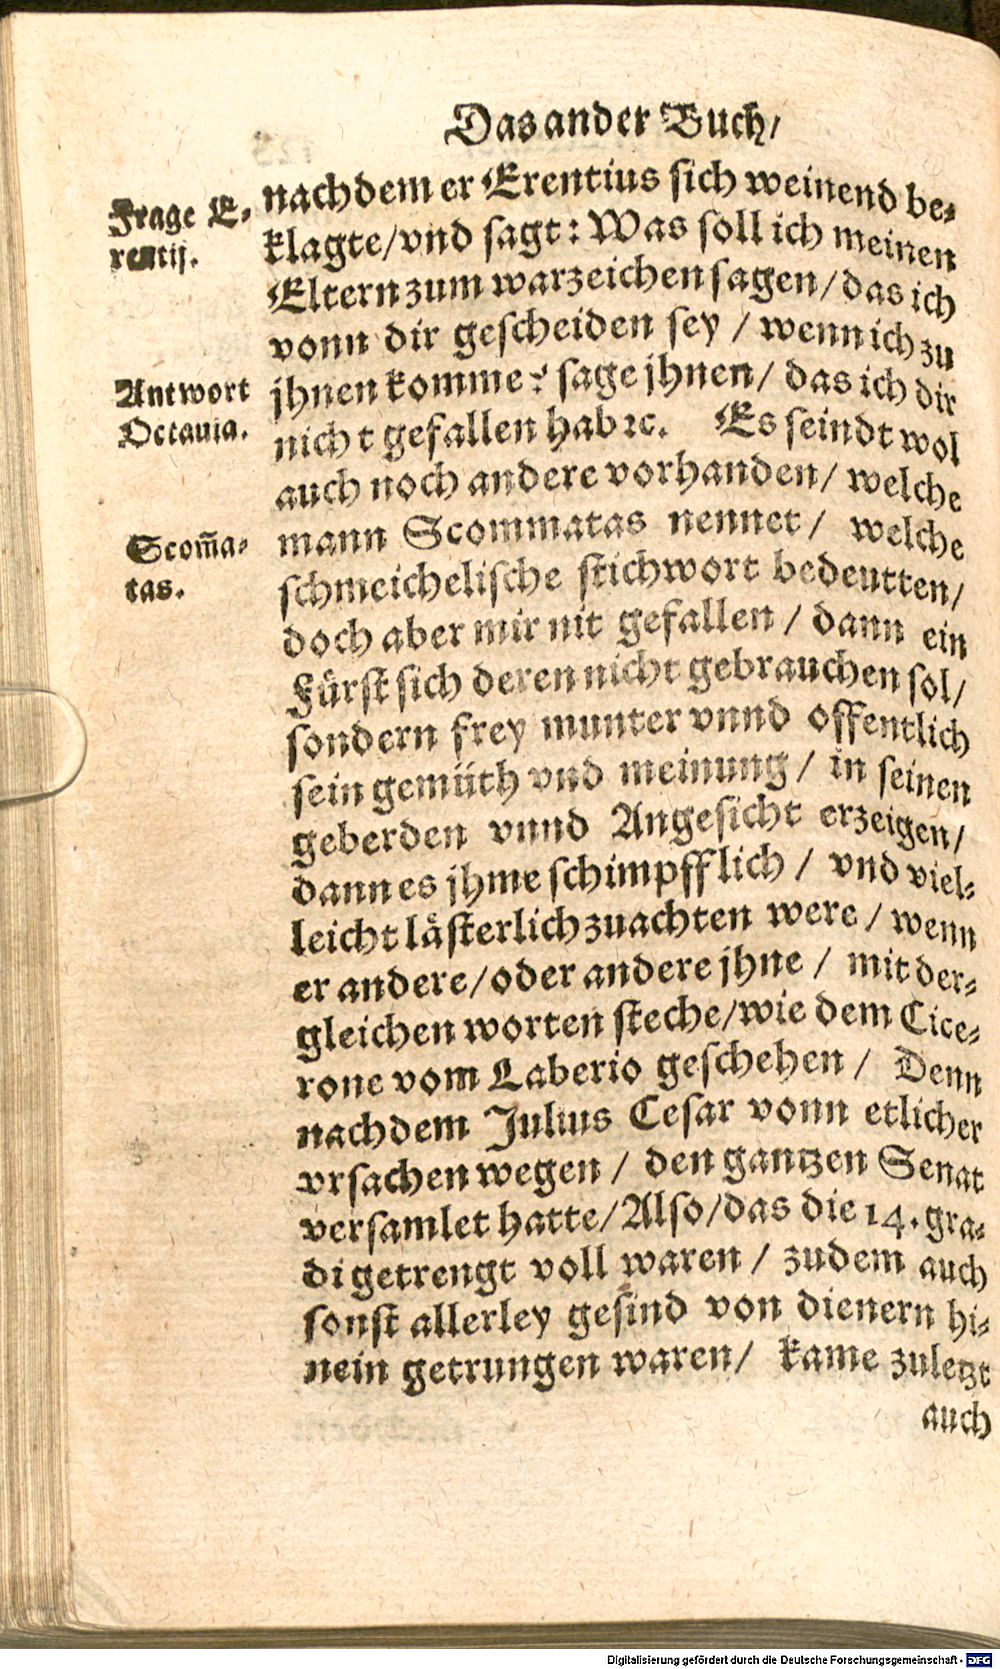 Das ander Buch/
Frage E-
rentij.
nachdem er Erentius sich weinend be-
klagte/vnd sagt: Was soll ich meinen
Eltern zum warzeichen sagen/das ich
vonn dir gescheiden sey / wenn ich zu
Antwort
Octauia.
jhnen komme? sage jhnen/ das ich dir
nicht gefallen hab ꝛc. Es seindt wol
auch noch andere vorhanden/ welche
Scom̃a-
tas.
mann Scommatas nennet/ welche
schmeichelische stichwort bedeutten/
doch aber mir nit gefallen / dann ein
Fürst sich deren nicht gebrauchen sol/
sondern frey munter vnnd offentlich
sein gemüth vnd meinung / in seinen
geberden vnnd Angesicht erzeigen/
dann es jhme schimpfflich / vnd viel-
leicht lästerlich zuachten were / wenn
er andere/oder andere jhne / mit der-
gleichen worten steche/wie dem Cice-
rone vom Laberio geschehen / Denn
nachdem Julius Cesar vonn etlicher
vrsachen wegen / den gantzen Senat
versamlet hatte/Also/das die 14. gra-
di getrengt voll waren / zudem auch
sonst allerley gesind von dienern hi-
nein getrungen waren/ kame zuletzt
auch
Digitalisierung gefördert durch die Deutsche Forschungsgemeinschaft - DFG